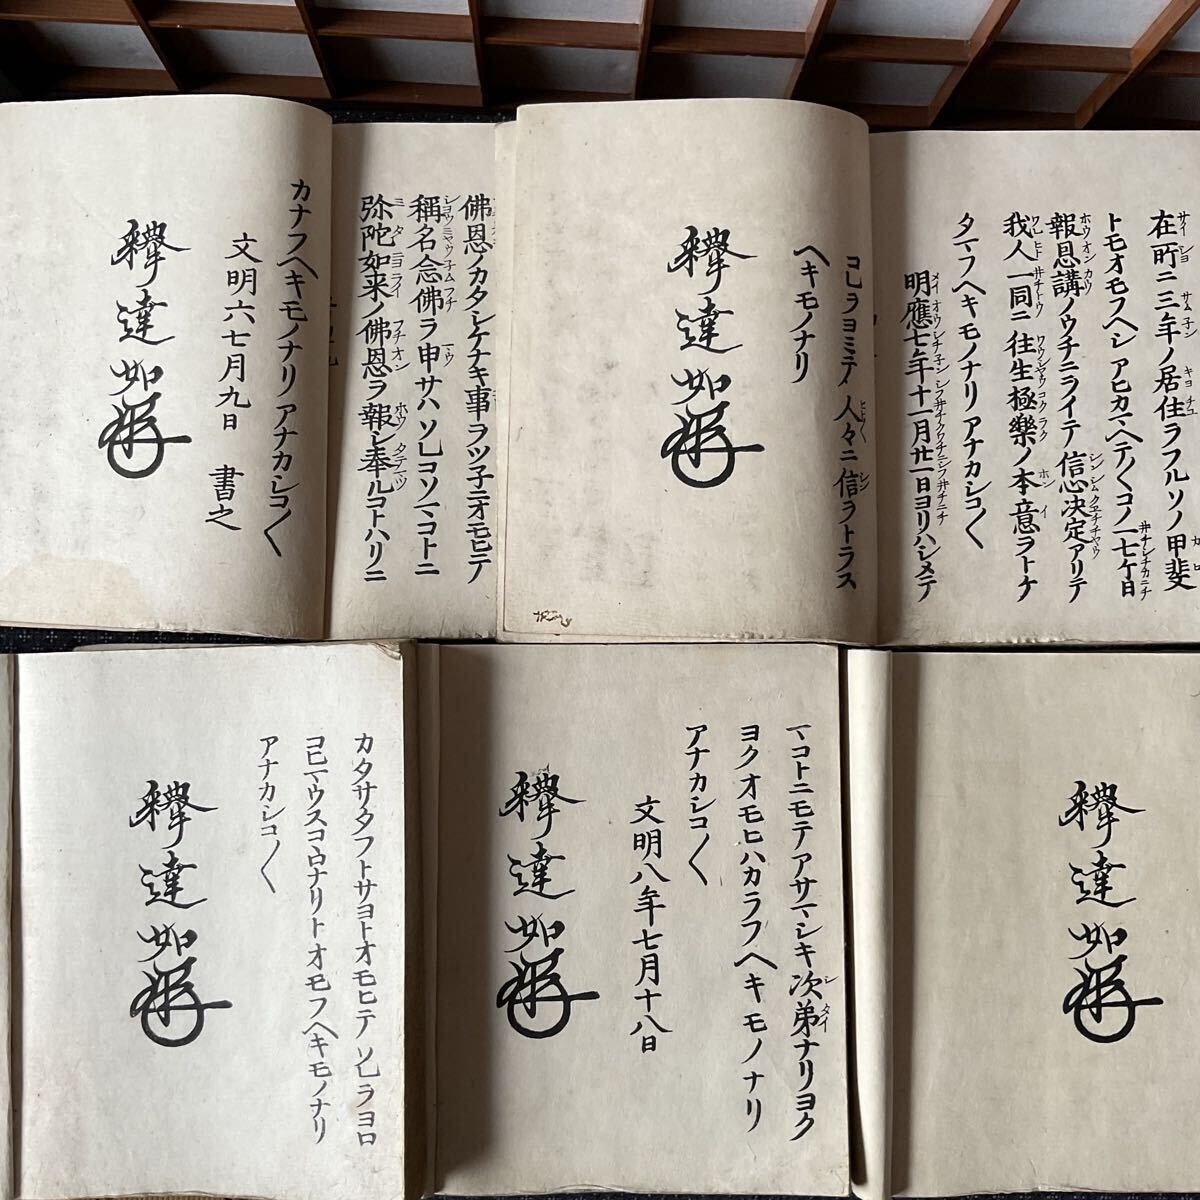 在所ニ三年ノ居住ヲフルソノ甲斐
トモオモフヘシアヒカマヘテ〱コノ一七ケ日
報恩講ノウチニヲイテ信心決定アリテ
我人一同ニ往生極樂ノ本意ヲトケ
タマフヘキモノナリアナカシコ〱
明應七年十一月廿一日ヨリハシメテ
コレヲヨミテ人々ニ信ヲトラス
ヘキモノナリ
釋達如
佛恩ノカタシケナキ事ヲツ子ニオモヒテ
稱名念佛ヲ申サハソレコソマコトニ
弥陀如来ノ佛恩ヲ報シ奉ルコトハリニ
カナフヘキモノナリアナカシコ〱
文明六七月九日 書之
釋達如
釋達如
マコトニモテアサマシキ次第ナリヨク
ヨクオモヒハカラフヘキモノナリ
アナカシコ〱
文明八年七月十八日
釋達如
カタサタフトサヨトオモヒテソレヲヨロ
コヒマウスコヽロナリトオモフヘキモノナリ
アナカシコ〱
釋達如